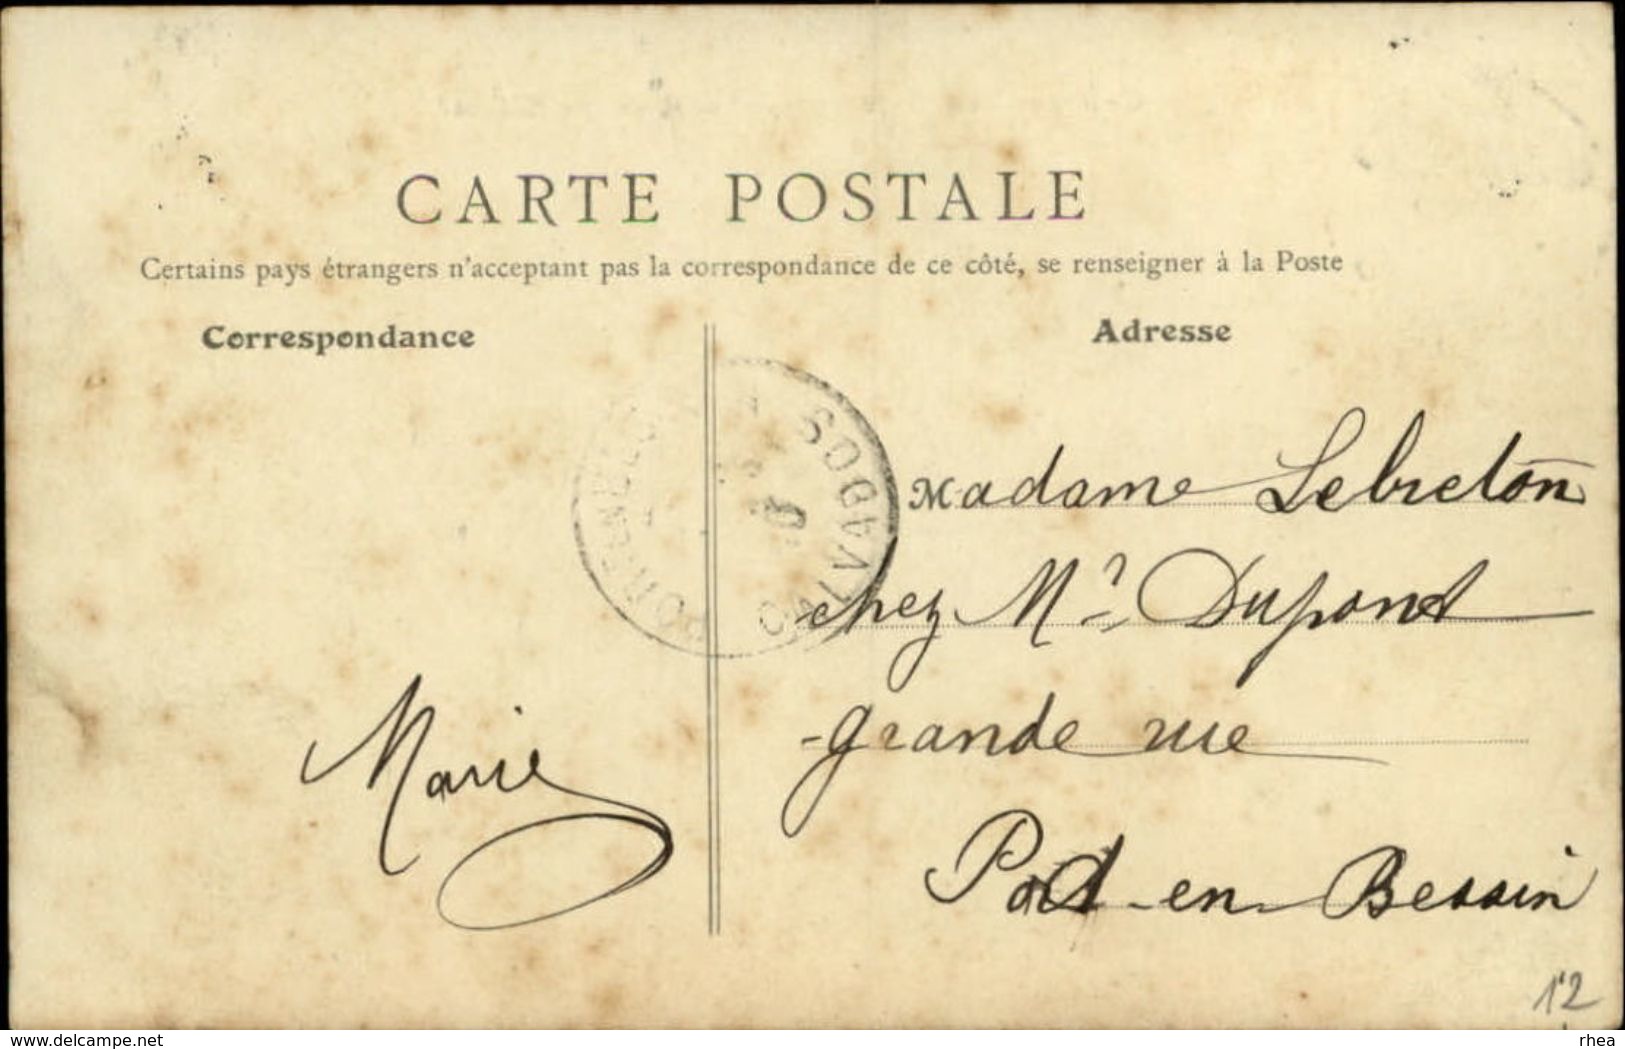 CARTE POSTALE
Certains pays étrangers n'acceptant pas la correspondance de ce côté, se renseigner à la Poste
Correspondance
Adresse
CALVADOS
Madame Lebreton
chez Mr Dupont
grande rue
Port-en-Bessin
Marie
12
www.delcampe.net
rhea